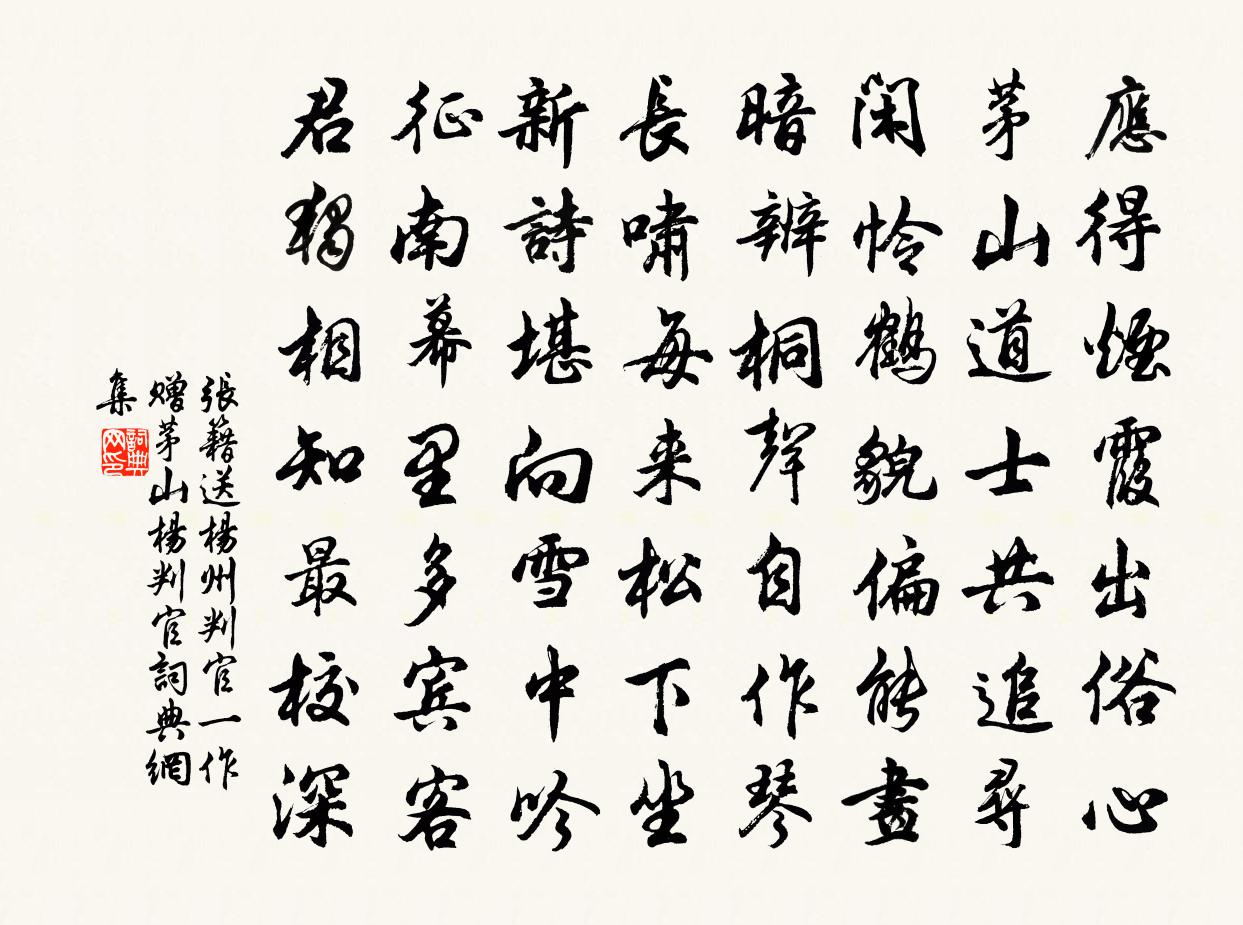 應得煙霞出俗心
茅山道士共追尋
閑憐鶴貌偏能畫
暗辨桐聲自作琴
長嘯每来松下坐
新詩堪向雪中吟
征南幕里多賓客
君獨相知最校深
張籍送楊州判官一作
贈茅山楊判官詞典網
集
詞典
网印